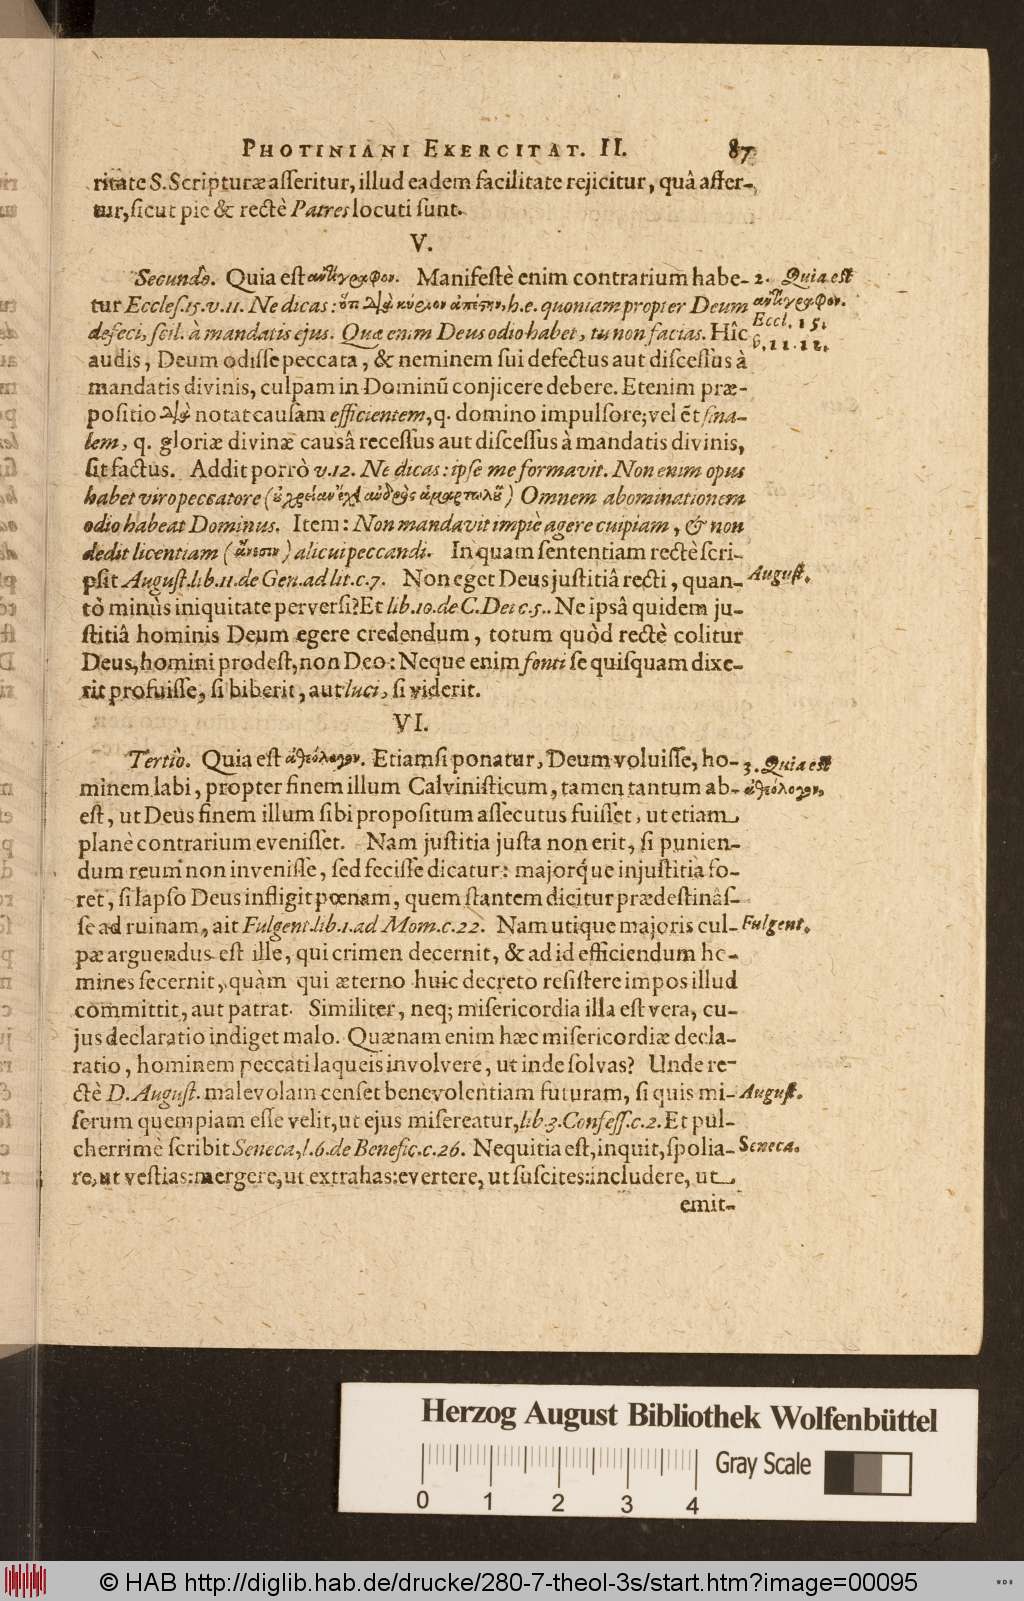 PHOTINIANI EXERCITAT. II. 87
ritate S. Scripturæ asseritur, illud eadem facilitate rejicitur, quâ affer-
tur, sicut pie & rectè Patres locuti sunt.
V.
Secundò. Quia est ἀντίγραφον. Manifestè enim contrarium habe-
2. Quia est
tur Eccles. 15. v. 11. Ne dicas: ὅτι διὰ κύριον ἀπέστην, h. e. quoniam propter Deum
ἀντίγραφον.
defeci, scil. à mandatis ejus. Quæ enim Deus odio habet, tu non facias. Hîc
Eccl. 15.
v. 11. 12.
audis, Deum odisse peccata, & neminem sui defectus aut discessus à
mandatis divinis, culpam in Dominū conjicere debere. Etenim præ-
positio διὰ notat causam efficientem, q. domino impulsore; vel ēt fina-
lem, q. gloriæ divinæ causâ recessus aut discessus à mandatis divinis,
sit factus. Addit porrò v. 12. Ne dicas: ipse me formavit. Non enim opus
habet viro peccatore (ὐ χρείαν ἔχει ἀνδρὸς ἁμαρτωλοῦ) Omnem abominationem
odio habeat Dominus. Item: Non mandavit impiè agere cuipiam, & non
dedit licentiam (ἄνεσιν) alicui peccandi. In quam sententiam rectè scri-
psit August. lib. 11. de Gen. ad lit. c. 7. Non eget Deus justitiâ recti, quan-
August.
tò minùs iniquitate perversi? Et lib. 10. de C. Dei c. 5.. Ne ipsâ quidem ju-
stitiâ hominis Deum egere credendum, totum quòd rectè colitur
Deus, homini prodest, non Deo: Neque enim fonti se quisquam dixe-
rit profuisse, si biberit, aut luci, si viderit.
VI.
Tertiò. Quia est ἀθεόλογον. Etiamsi ponatur, Deum voluisse, ho-
3. Quia est
minem labi, propter finem illum Calvinisticum, tamen tantum ab-
ἀθεόλογον,
est, ut Deus finem illum sibi propositum assecutus fuisset, ut etiam
planè contrarium evenisset. Nam justitia justa non erit, si punien-
dum reum non invenisse, sed fecisse dicatur: majorq́ue injustitia fo-
ret, si lapso Deus infligit pœnam, quem stantem dicitur prædestinâs-
se ad ruinam, ait Fulgent. lib. 1. ad Mom. c. 22. Nam utique majoris cul-
Fulgent.
pæ arguendus est ille, qui crimen decernit, & ad id efficiendum ho-
mines secernit, quàm qui æterno huic decreto resistere impos illud
committit, aut patrat. Similiter, neq; misericordia illa est vera, cu-
jus declaratio indiget malo. Quænam enim hæc misericordiæ decla-
ratio, hominem peccati laqueis involvere, ut inde solvas? Unde re-
ctè D. August. malevolam censet benevolentiam futuram, si quis mi-
August.
serum quempiam esse velit, ut ejus misereatur, lib. 3. Confess. c. 2. Et pul-
cherrimè scribit Seneca, l. 6. de Benefic. c. 26. Nequitia est, inquit, spolia-
Seneca.
re, ut vestias: mergere, ut extrahas: evertere, ut suscites: includere, ut
emit-
Herzog August Bibliothek Wolfenbüttel
Gray Scale
0 1 2 3 4
© HAB http://diglib.hab.de/drucke/280-7-theol-3s/start.htm?image=00095